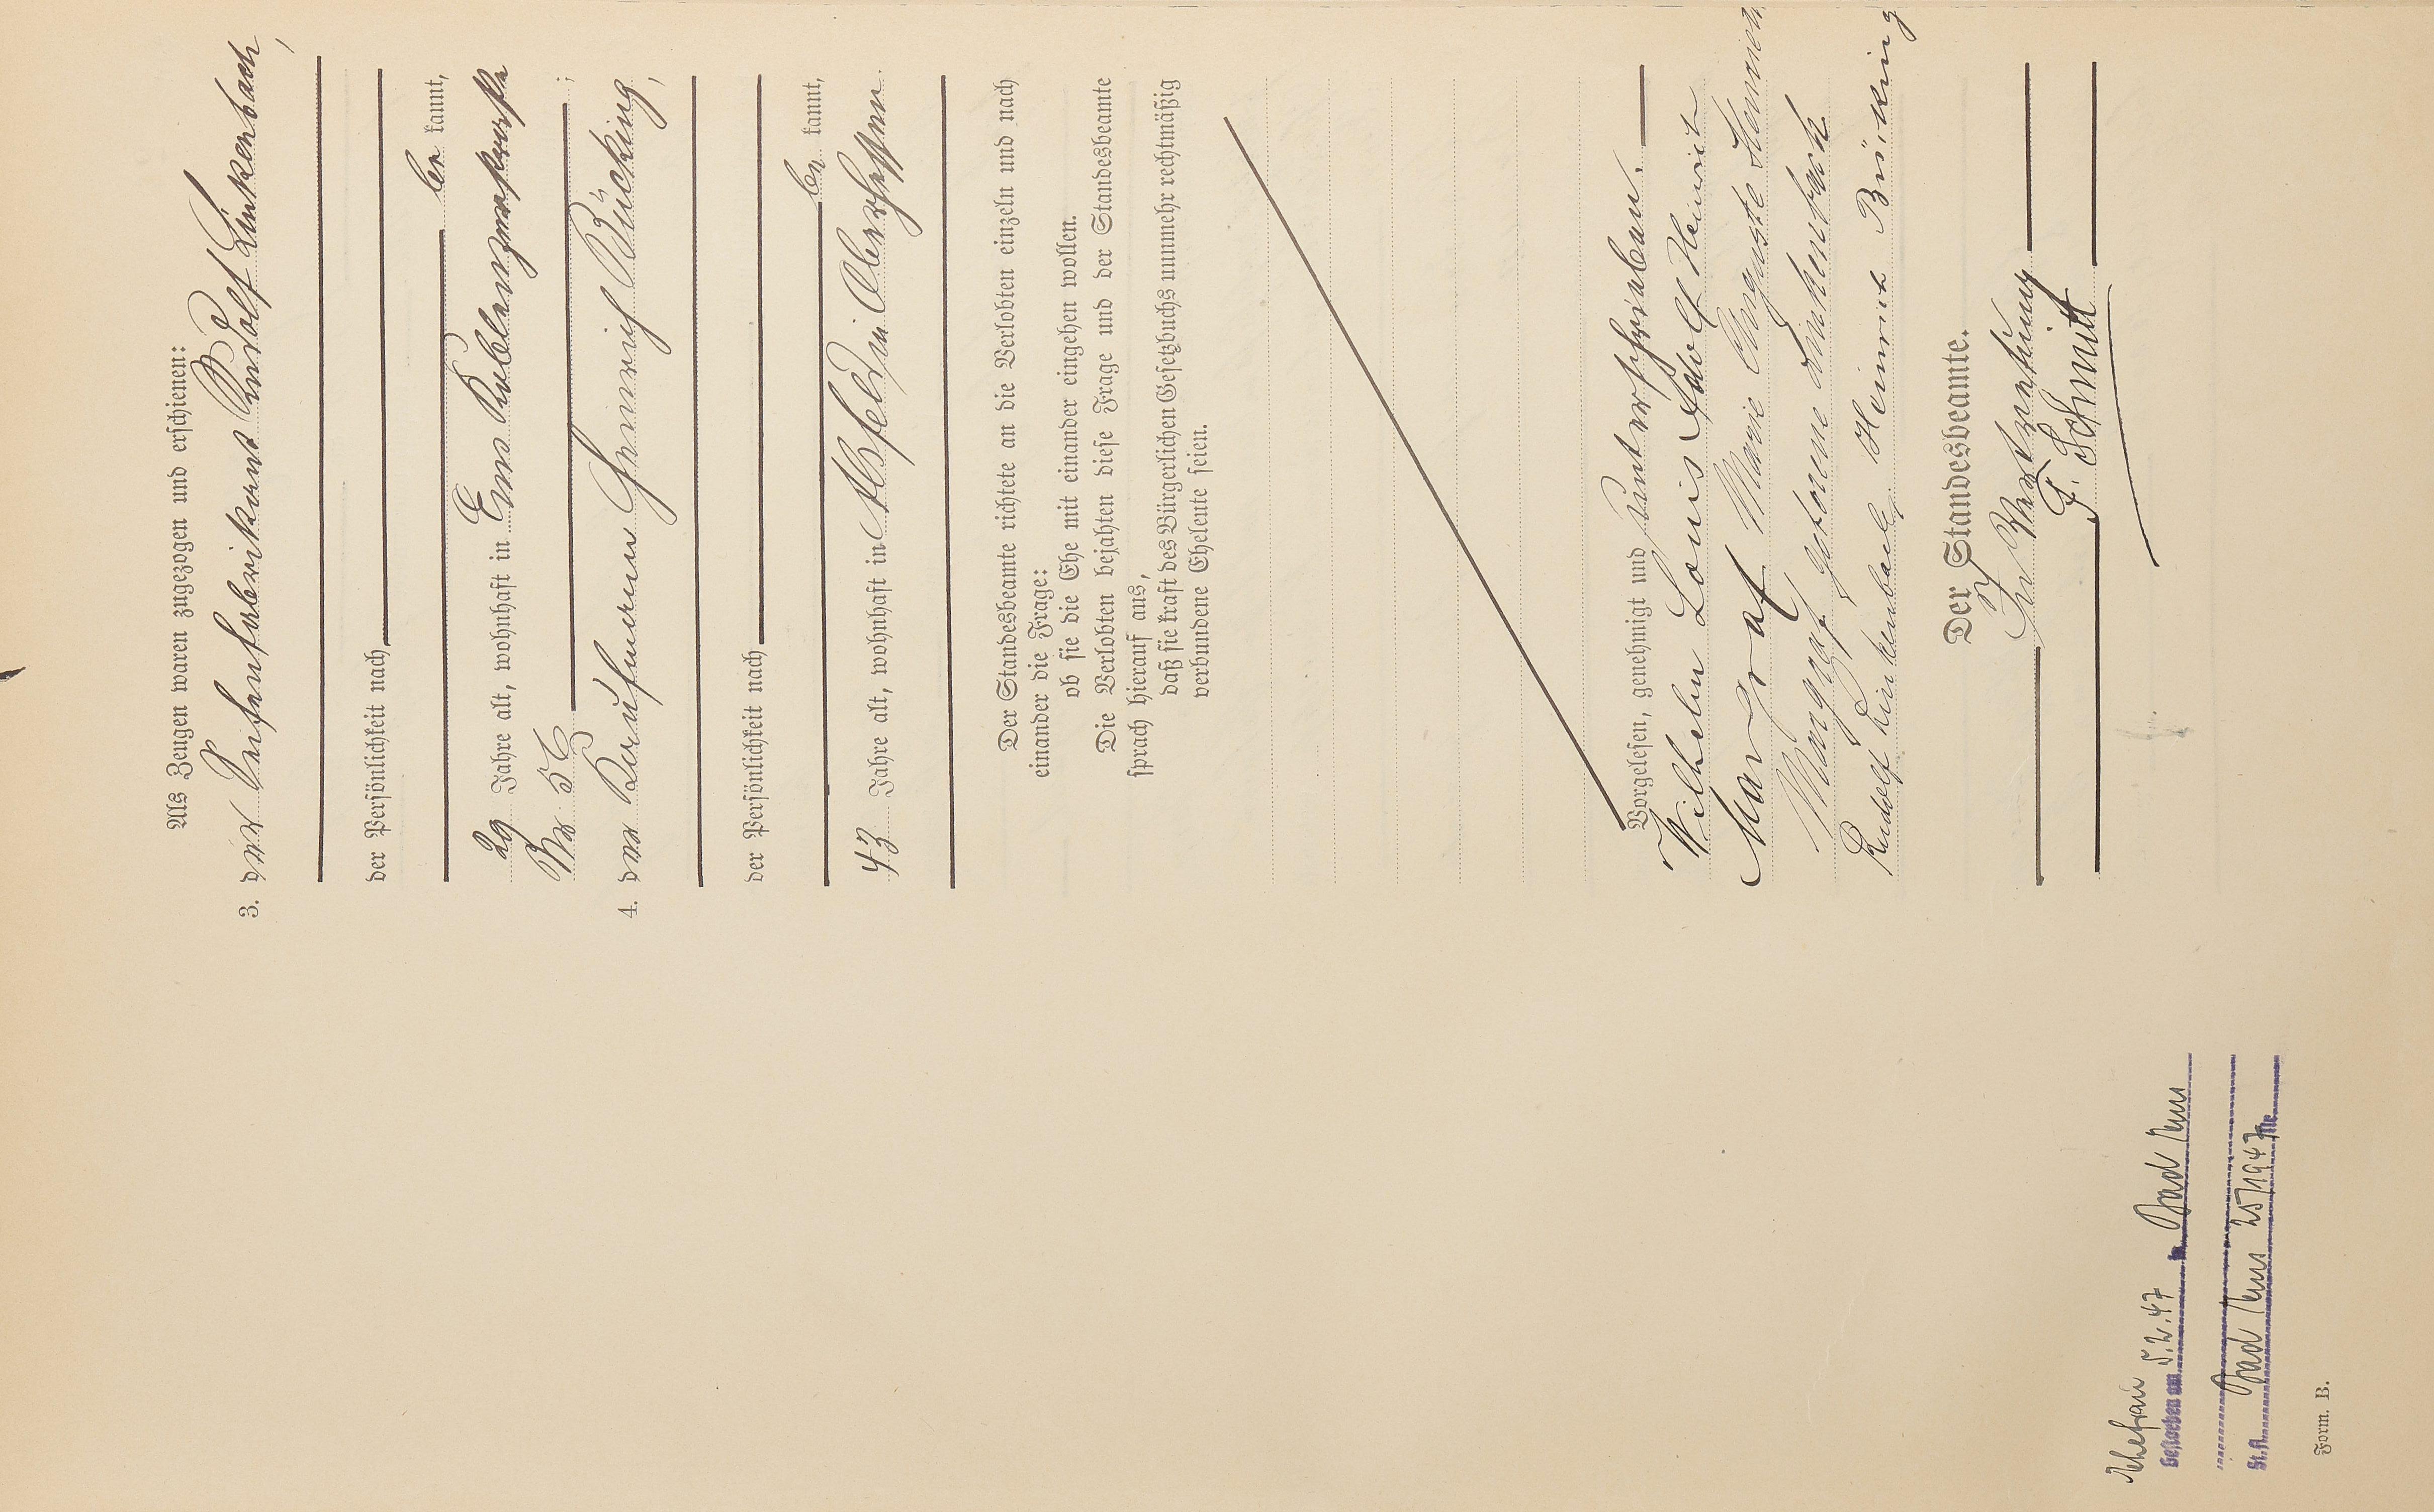 Als Zeugen waren zugezogen und erschienen:
3. der Seifenfabrikant Rudolf Linkenbach,
der Persönlichkeit nach
be kannt,
29 Jahre alt, wohnhaft in Ems Koblenzerstraße
No 56 ;
4. der Kaufmann Heinrich Bücking,
der Persönlichkeit nach
be kannt,
43 Jahre alt, wohnhaft in Alsfeld in Oberhessen.
Der Standesbeamte richtete an die Verlobten einzeln und nach
einander die Frage:
ob sie die Ehe mit einander eingehen wollen.
Die Verlobten bejahten diese Frage und der Standesbeamte
sprach hierauf aus,
daß sie kraft des Bürgerlichen Gesetzbuchs nunmehr rechtmäßig
verbundene Eheleute seien.
Vorgelesen, genehmigt und unterschrieben.
Wilhelm Louis Adolf Heinrich
Margraf Marie Auguste
Margraf geborene Linkenbach
Rudolf Linkenbach Heinrich Bücking
Der Standesbeamte.
In Vertretung
F. Schmitt
Ehefrau
Gestorben am 5.2.47 in Bad Ems
St.A. Bad Ems 25/1947
Form. B.